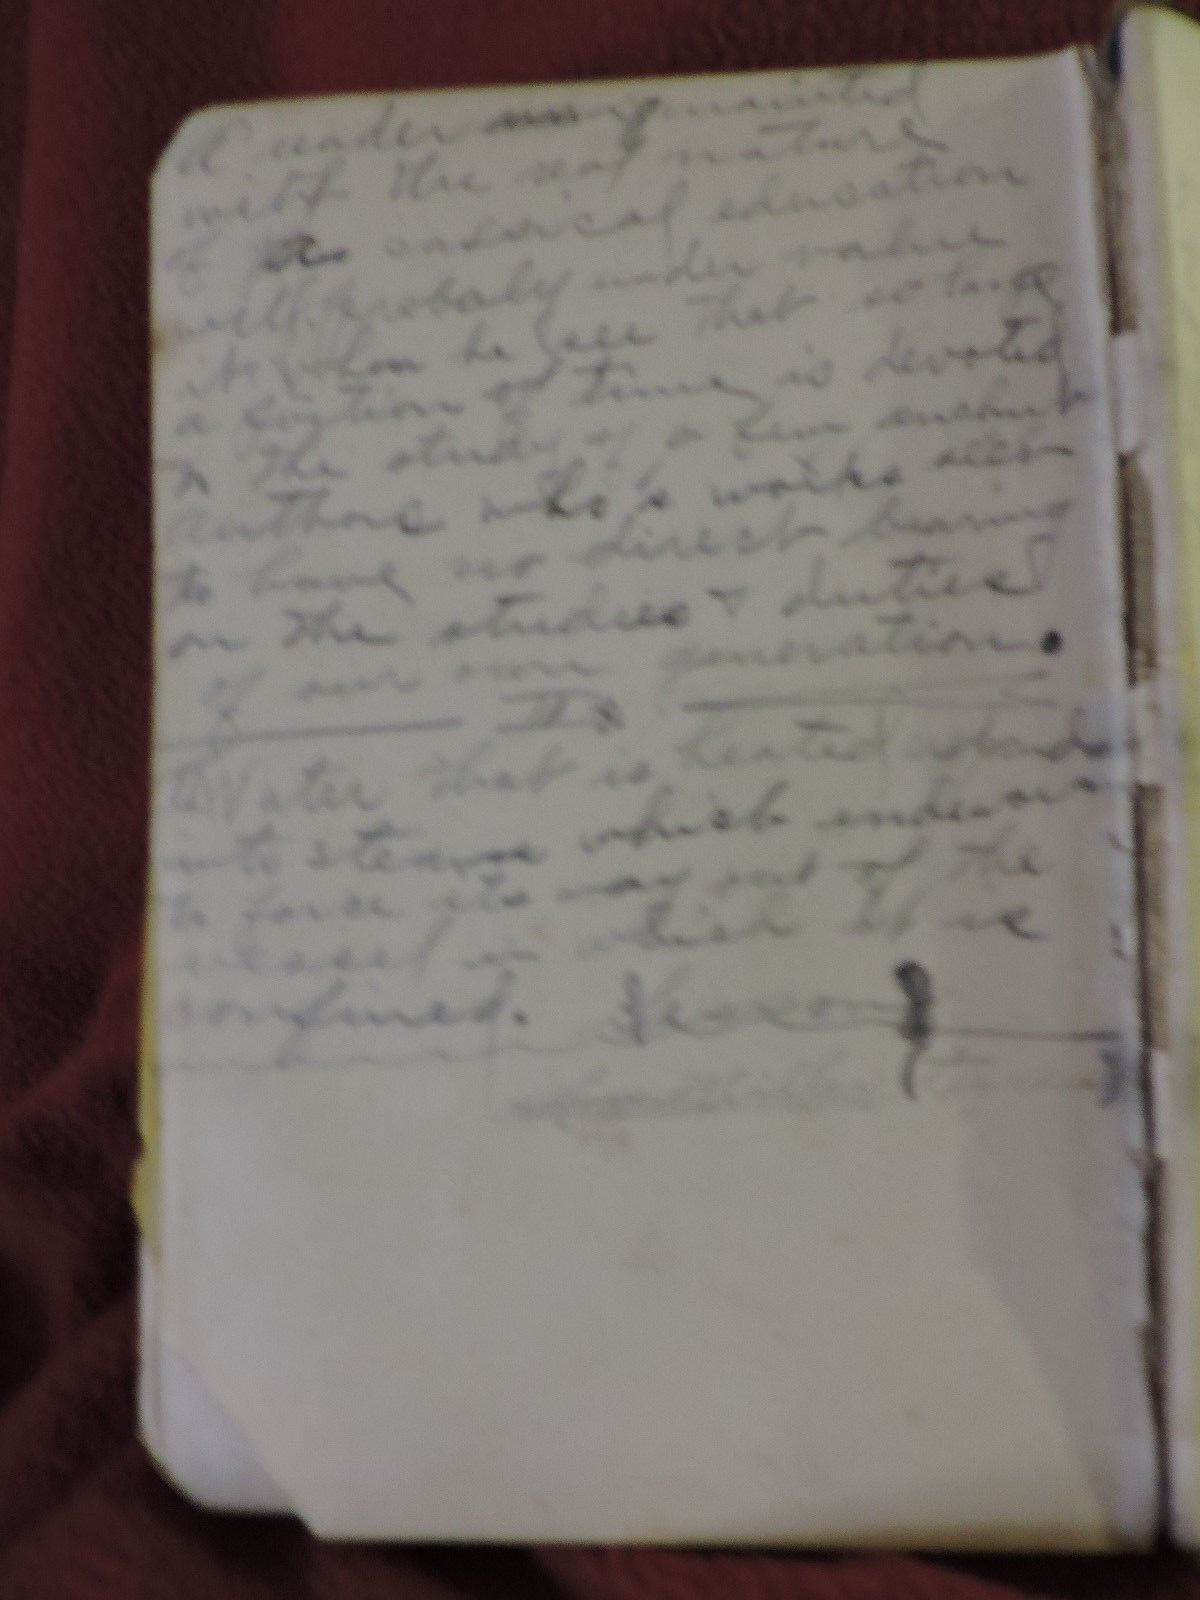 A reader
with the real nature
of a classical education
will probaly under value
it when he see that so large
a portion of time is devoted
to the study of a few ancient
authors who's works seem
to have no direct bearing
on the studies & duties
of our own generation.
II
Water that is heated
into steam which endeavors
to force its way out of the
vessel in which it is
confined.